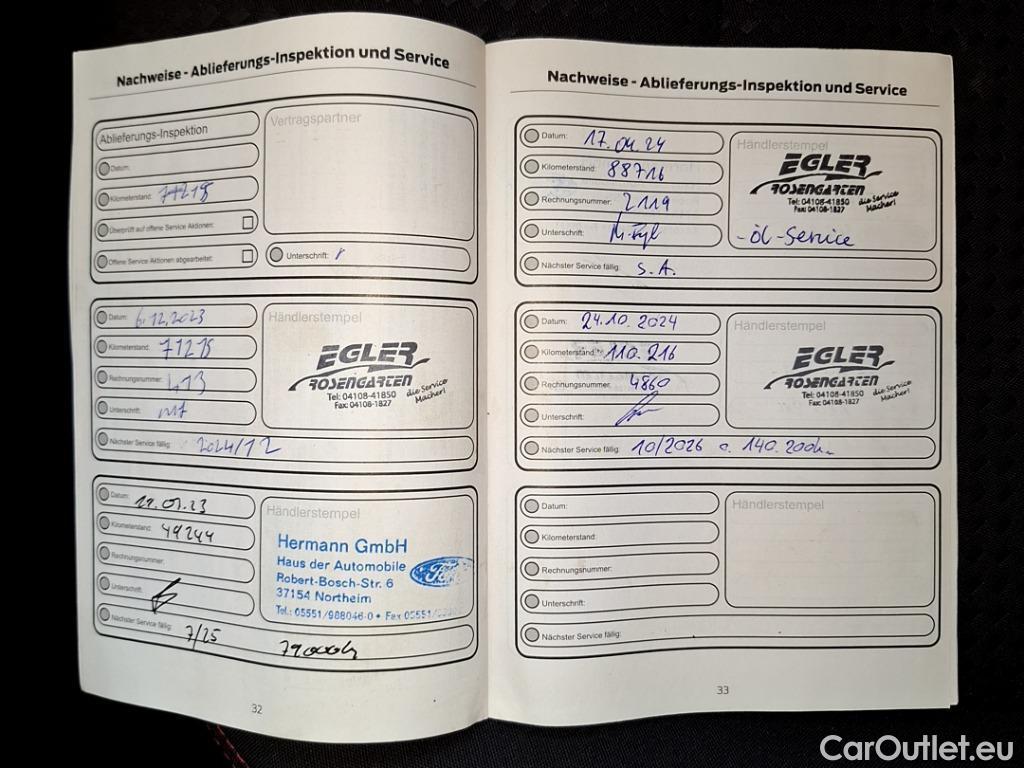 Nachweise - Ablieferungs-Inspektion und Service
Ablieferungs-Inspektion
Vertragspartner
Datum:
Kilometerstand:
Überprüft auf offene Service Aktionen:
Offene Service Aktionen abgearbeitet:
Unterschrift:
Datum: 6.12.2023
Händlerstempel
Kilometerstand: 71218
Rechnungsnummer: 413
Unterschrift:
EGLER
ROSENGARTEN
die Service Macher!
Tel: 04108-41850
Fax: 04108-1827
Nächster Service fällig: 2024/12
Datum:
Händlerstempel
Kilometerstand: 49244
Rechnungsnummer:
Unterschrift:
Hermann GmbH
Haus der Automobile
Ford
Robert-Bosch-Str. 6
37154 Northeim
Tel.: 05551/988046-0 • Fax 05551/
Nächster Service fällig: 7/25 79000k
32
Nachweise - Ablieferungs-Inspektion und Service
Datum: 17.04.24
Händlerstempel
Kilometerstand: 88716
Rechnungsnummer: 2119
Unterschrift:
EGLER
ROSENGARTEN
die Service Macher!
Tel: 04108-41850
Fax: 04108-1827
-Öl-Service
Nächster Service fällig: S.A.
Datum: 24.10.2024
Händlerstempel
Kilometerstand: 110.216
Rechnungsnummer: 4860
Unterschrift:
EGLER
ROSENGARTEN
die Service Macher!
Tel: 04108-41850
Fax: 04108-1827
Nächster Service fällig: 10/2026 o. 140.200km
Datum:
Händlerstempel
Kilometerstand:
Rechnungsnummer:
Unterschrift:
Nächster Service fällig:
33
CarOutlet.eu